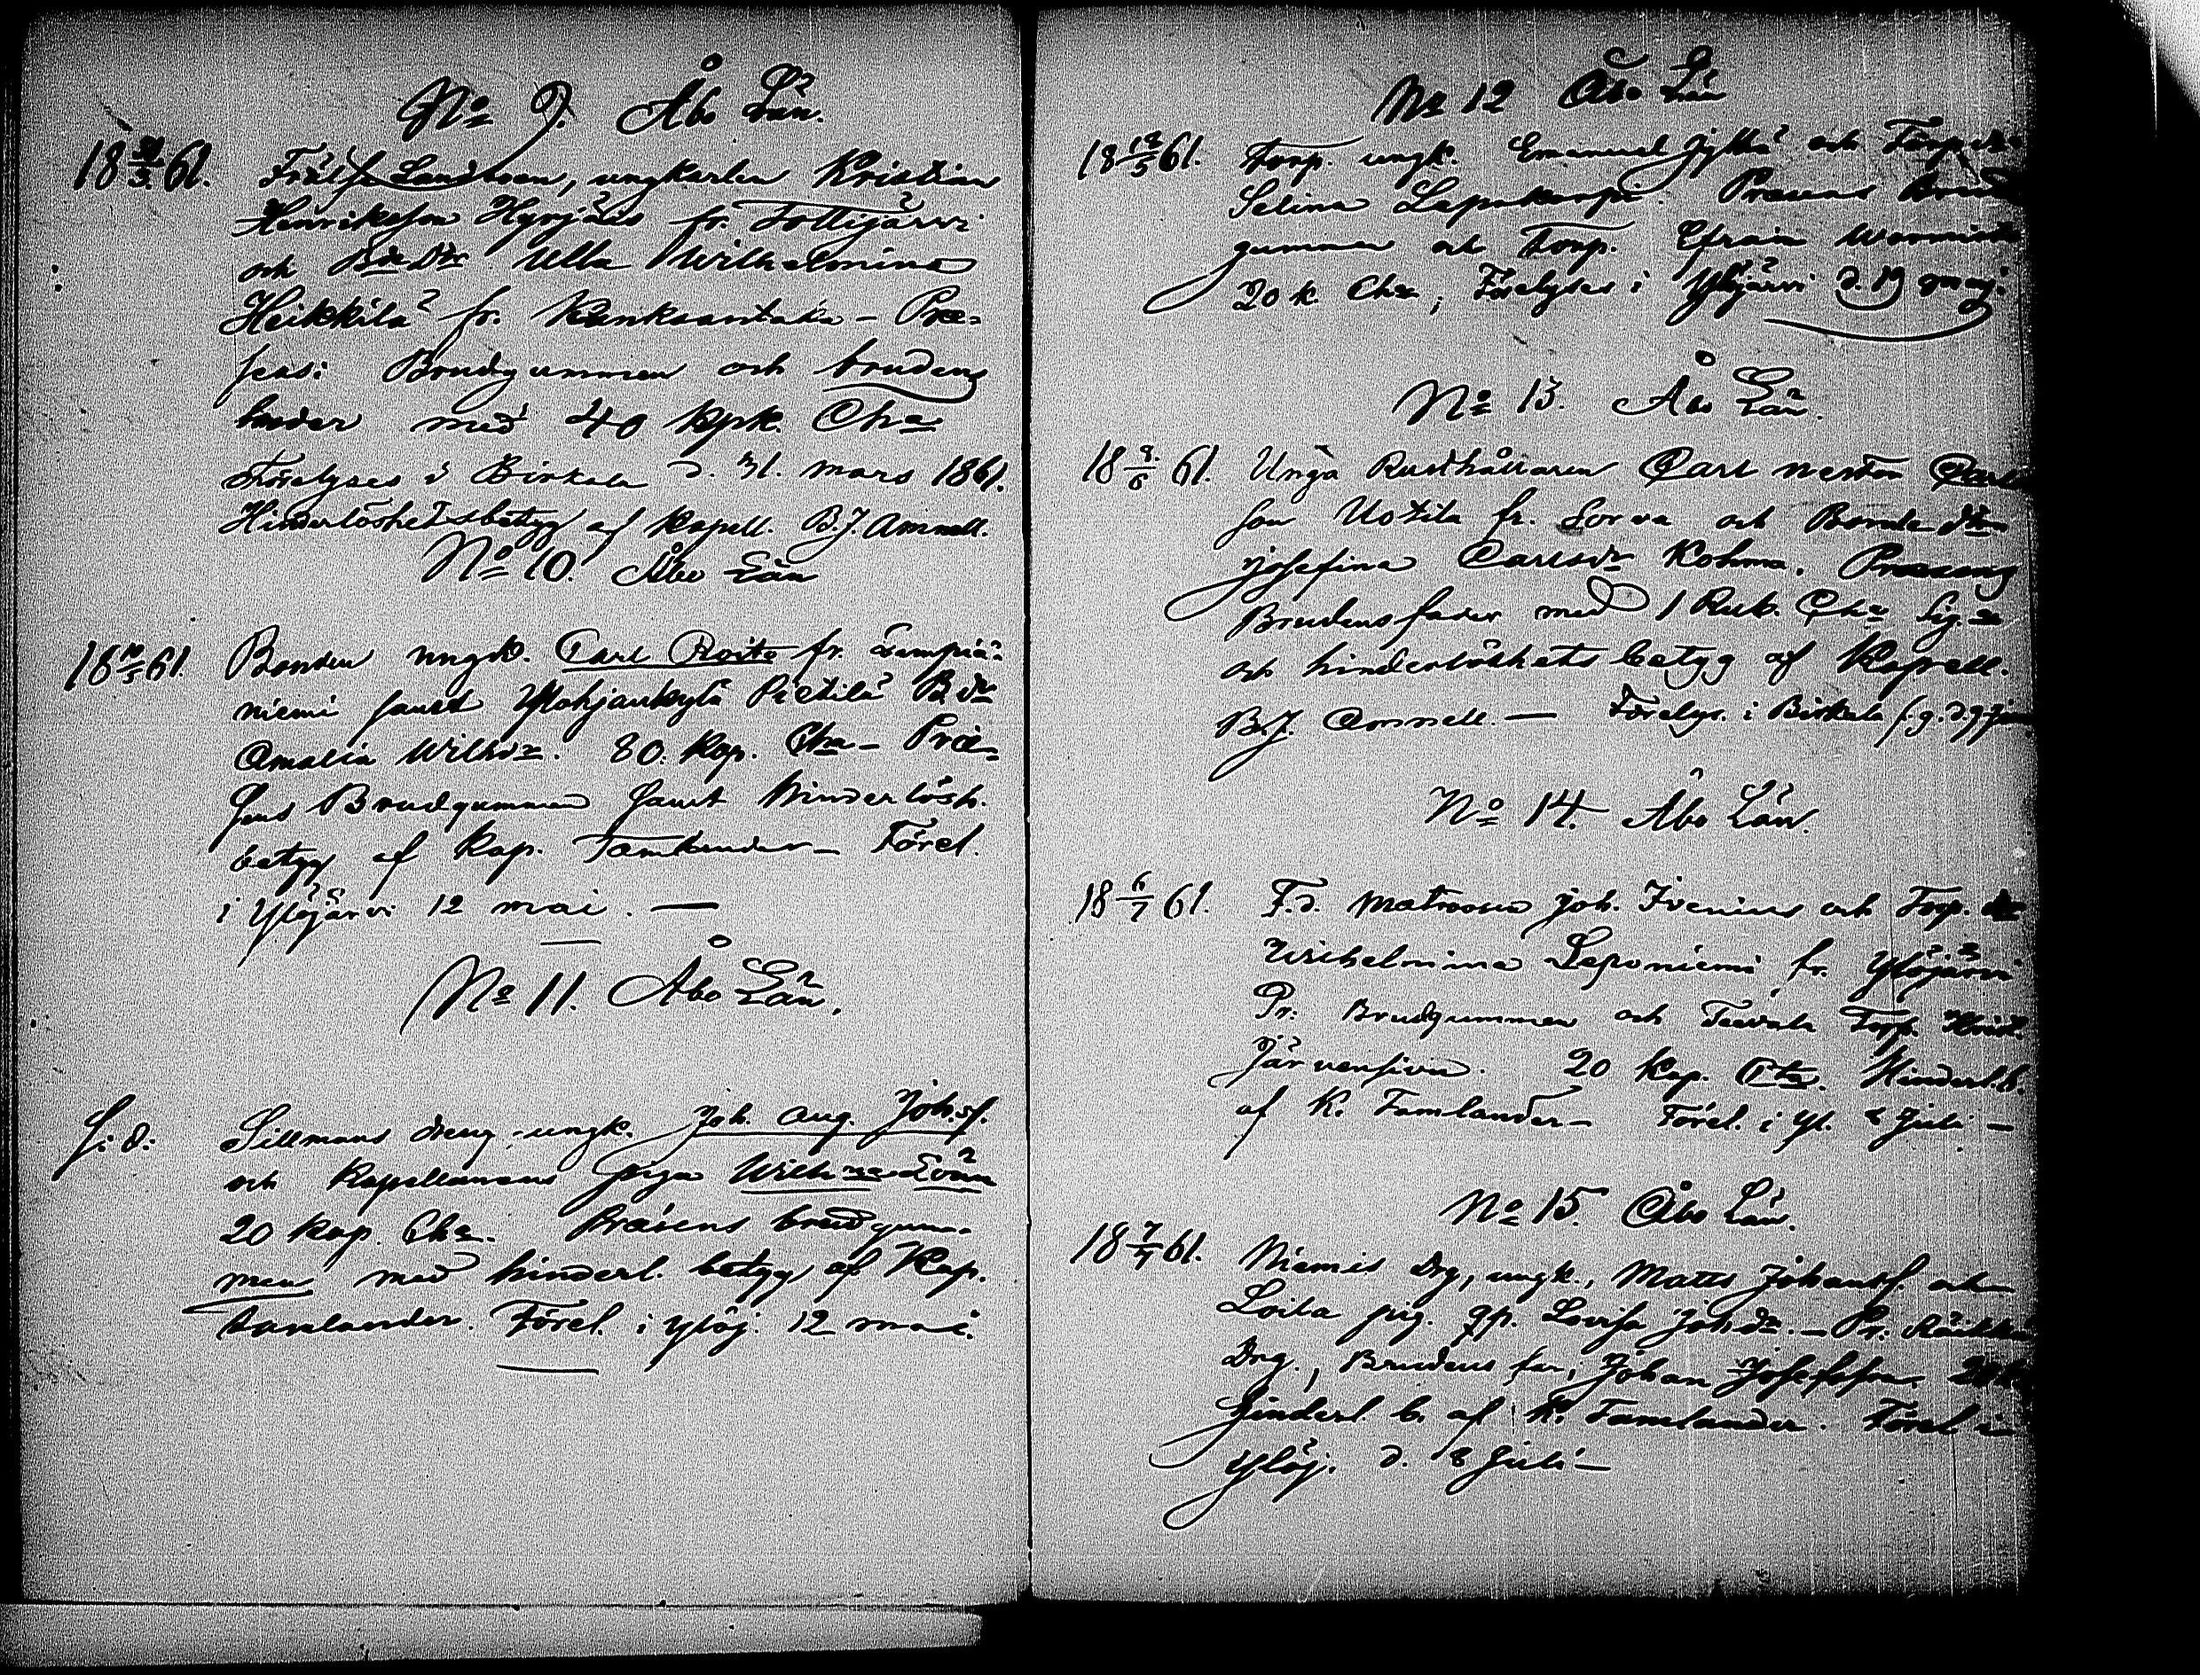 No 9. Åbo Län.
18 30/3 61. Frälse Landboen, ungkarlen Kristian
Henriksson Hyrjäis fr. Tottijärvi
och Bdedtr Ulla Wilhelmina
Heikkilä fr. Kankaantaka – Præ-
sens: Brudgummen och brudens
broder med 40 kpk. Cha
Förelyses i Birkala d. 31. mars 1861.
Hinderlöshetsbetyg af Kapell. B. J. Amnell.
No 10. Åbo Län
18 10/5 61. Bonden ungk. Carl Roito fr. Lempiä-
niemi samt Ylohjankylä Pietilä B.dr
Amalia Wilhdr. 80. Kop. Cha – Præ-
sens Brudgummen samt hinderlösh.
betyg af Kap. Tamlander – Förel.
i Ylöjärvi 12 mai. —
No 11. Åbo Län.
S. d. Sillmans dreng-ungk. Joh. Aug. Johsf.
och Kapellanens piga Wilhna Evän
20 kop. Cha. Præsens brudgum-
men med hinderl. betyg af Kap.
Tamlander. Förel. i Ylöj. 12 mai.
No 12 Åbo Län
18 12/5 61. Torp. ungk. Emanuel Jyllä och Torp. dr
Selina Lepokorpi. Præsens Brud
gummen och Torp. Efraim
20 k. Cha, Förelyses i Ylöjärvi d. 19 maj.
No 13. Åbo Län.
18 9/6 61. Unga Rusthållaren Carl Nestor Carl
son Uotila fr. Sorva och Bondedtr
Josefina Carlsdr Kohma. Præsens
Brudens fader med 1 Rub. Cha Sig.
och hinderlöshets betyg af Kapell.
B. J. Amnell. — Förelys. i Birkala f. g. d. 9 jun
No 14. Åbo Län.
18 6/7 61. F.d. Matrosen Joh. Ivenius och Torp. dr
Wilhelmina Leponiemi fr. Ylöjärvi
Pr. Brudgummen och Teivala Torp.
Järvensivu. 20 Kop. Cha. Hinderl. b.
af K. Tamlander – Förel. i Yl. Juli –
No 15. Åbo Län.
18 7/7 61. Niemis Drg, ungk., Matts Johansf. och
Loila pig. qp. Lovisa Johdr. – Pr. Räikkä
Drg., Brudens far, Johan Josefsson. 20 k
Hinderl. b. af K. Tamlander. Förel i
Ylöj. d. 8 Juli –